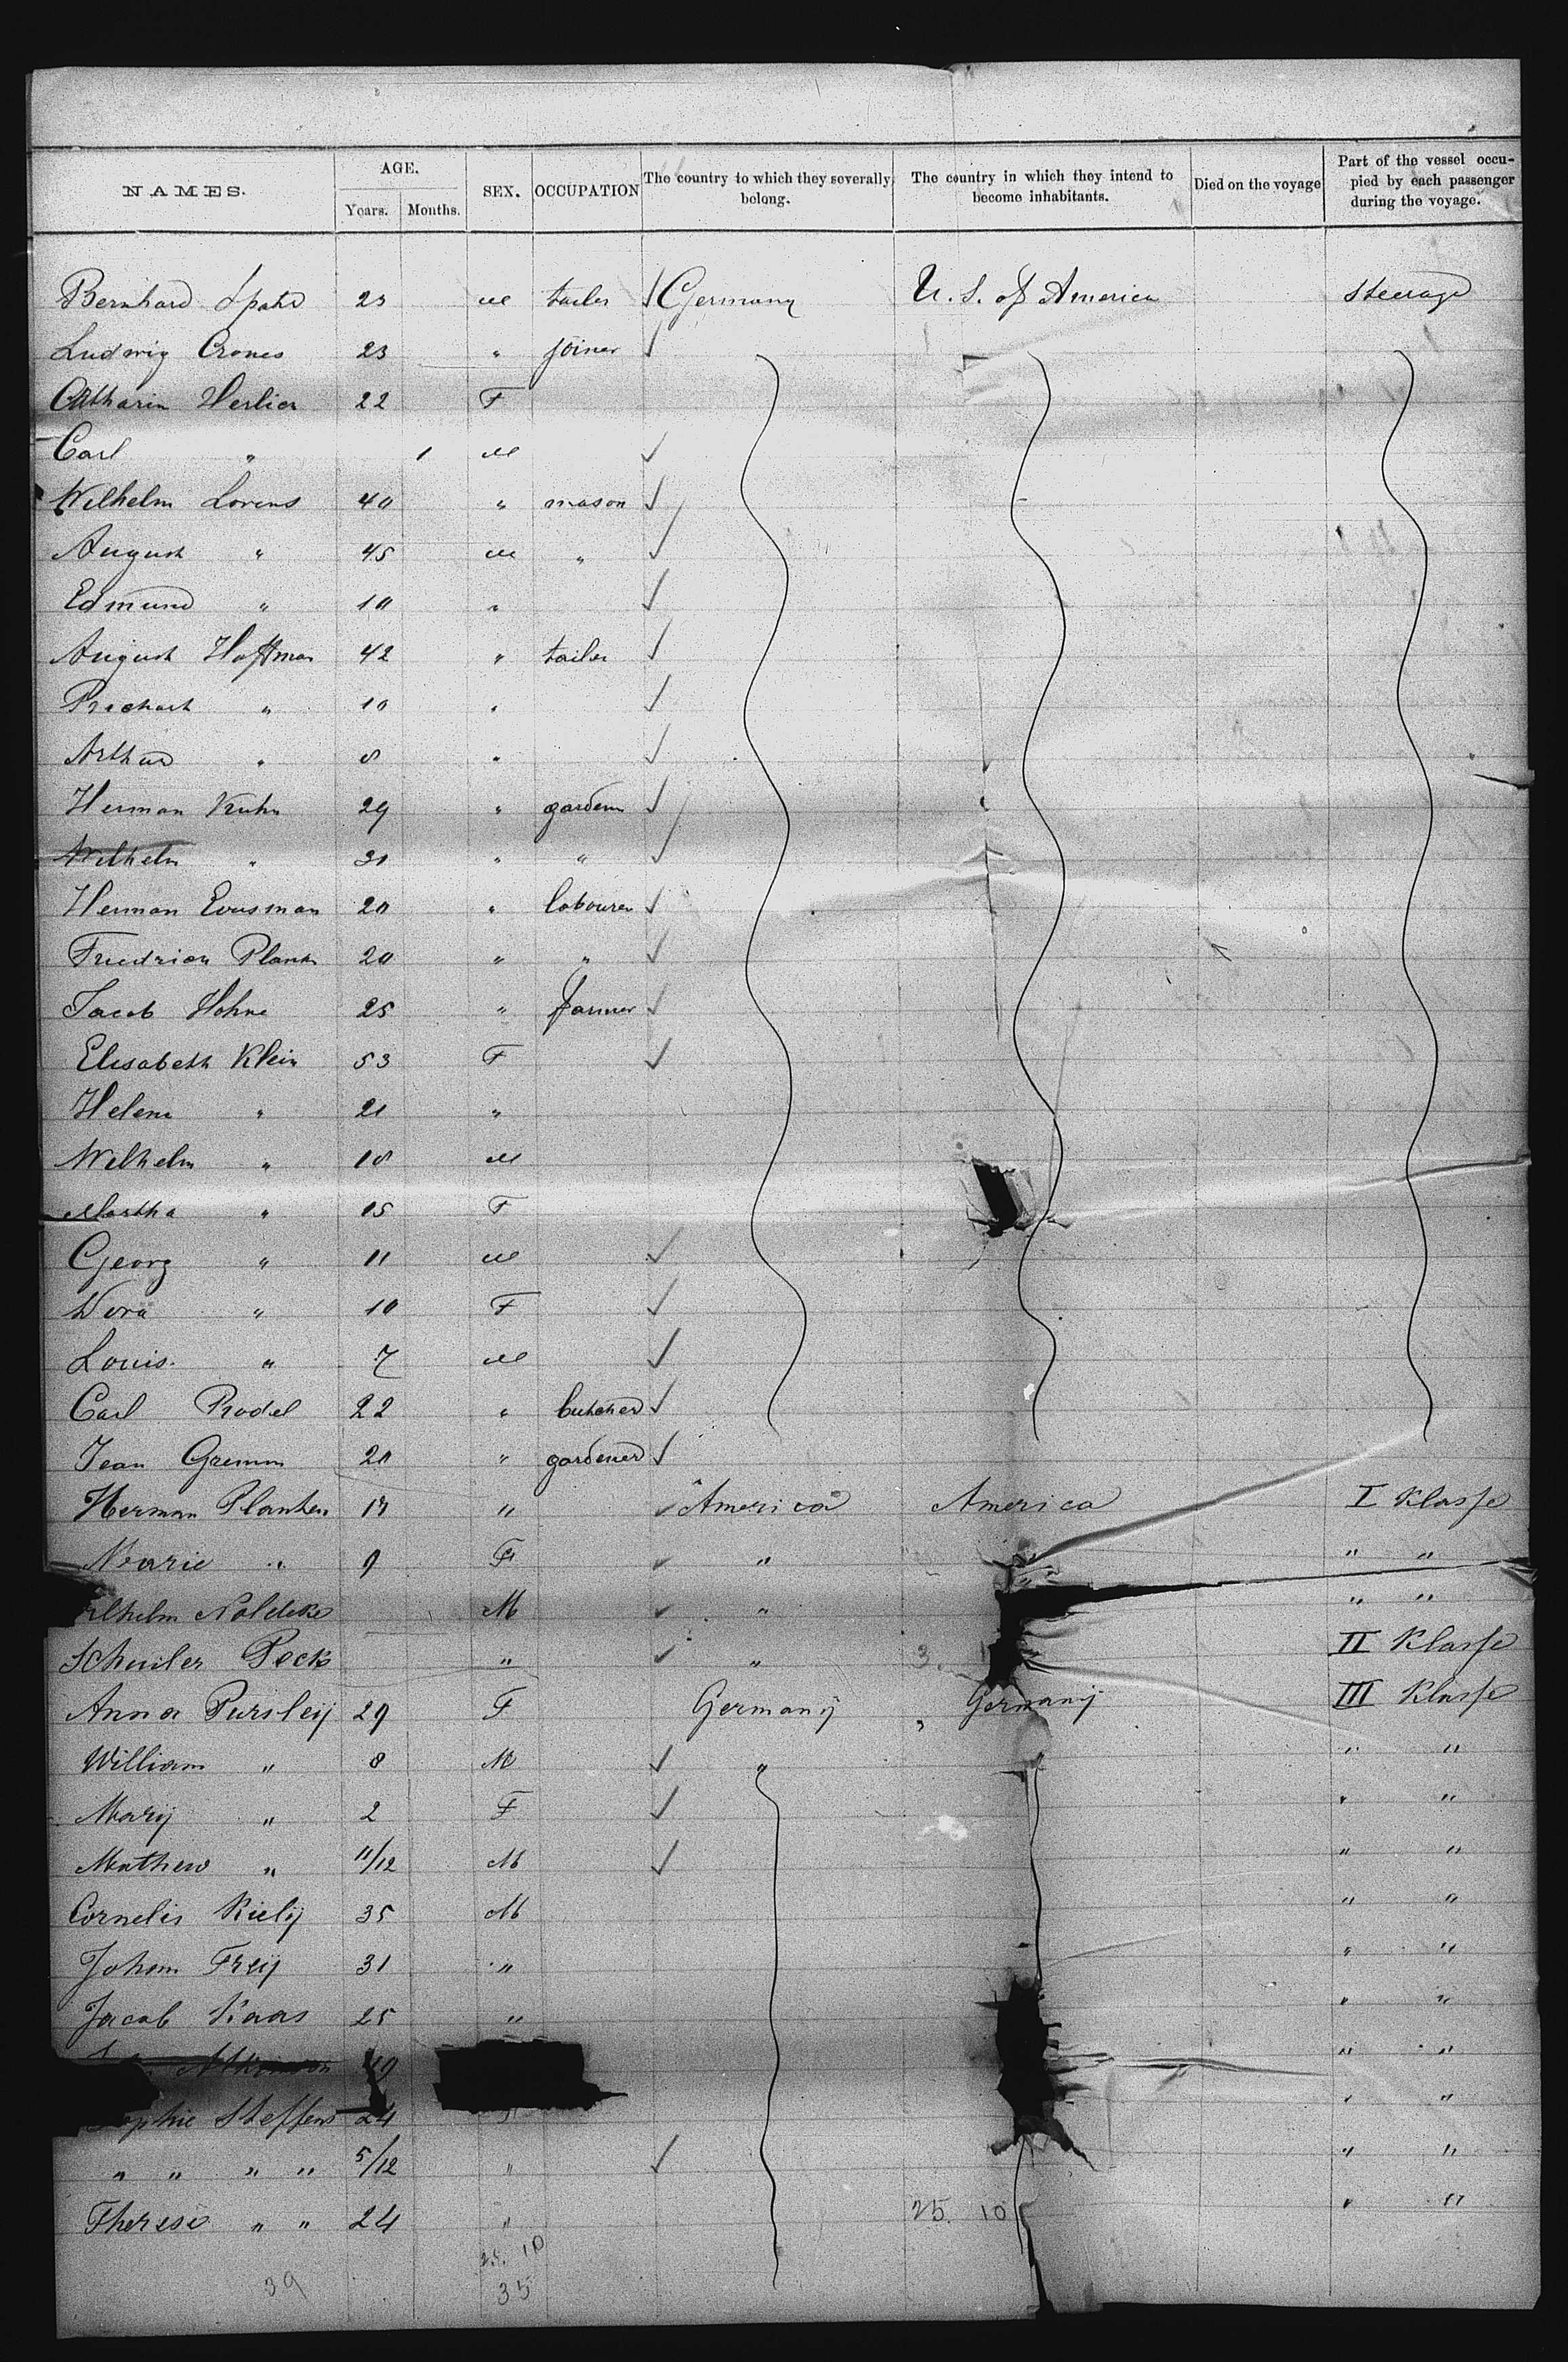 NAMES. AGE. Years. Months. SEX. OCCUPATION The country to which they severally belong. The country in which they intend to become inhabitants. Died on the voyage Part of the vessel occupied by each passenger during the voyage.
Bernhard 23 M tailer Germany U. S. of America steerage
Ludwig Crones 23 " joiner
Catharin Herlier 22 F
Carl " 1 M
Wilhelm Lorens 40 " mason
August " 45 M "
Edmund " 10 "
August Hoffman 42 " tailer
" 10 "
Arthur " 8 "
Herman Kuhn 29 " gardem
Wilhelm " 31 " "
Herman 20 " labourer
Friedrich Plank 20 " "
Jacob Hohne 25 " farmer
Elisabeth Klein 53 F
Helene " 21 "
Wilhelm " 18 M
Martha " 15 F
Georg " 11 M
Dora " 10 F
Louis " 7 M
Carl Rodel 22 " butcher
Jean Gremm 20 " gardener
Herman Planten " America America I Klasse
Marie " 9 F " " "
Noldeke M " " "
Schuiler Peck " " 3. II Klasse
Anna Pursleij 29 F Germanij " Germanij III Klasse
William " 8 M " " " "
Marij " 2 F " "
Mathew " 11/12 M " "
Cornelis Rielij 35 M " "
Johan Freij 31 " " "
Jacob Kaas 25 " " "
Atkinson " "
Sophie Steffens 24 " "
" " " " 5/12 " " "
Therese " " 24 " 25. 10 " "
25. 10
39 35